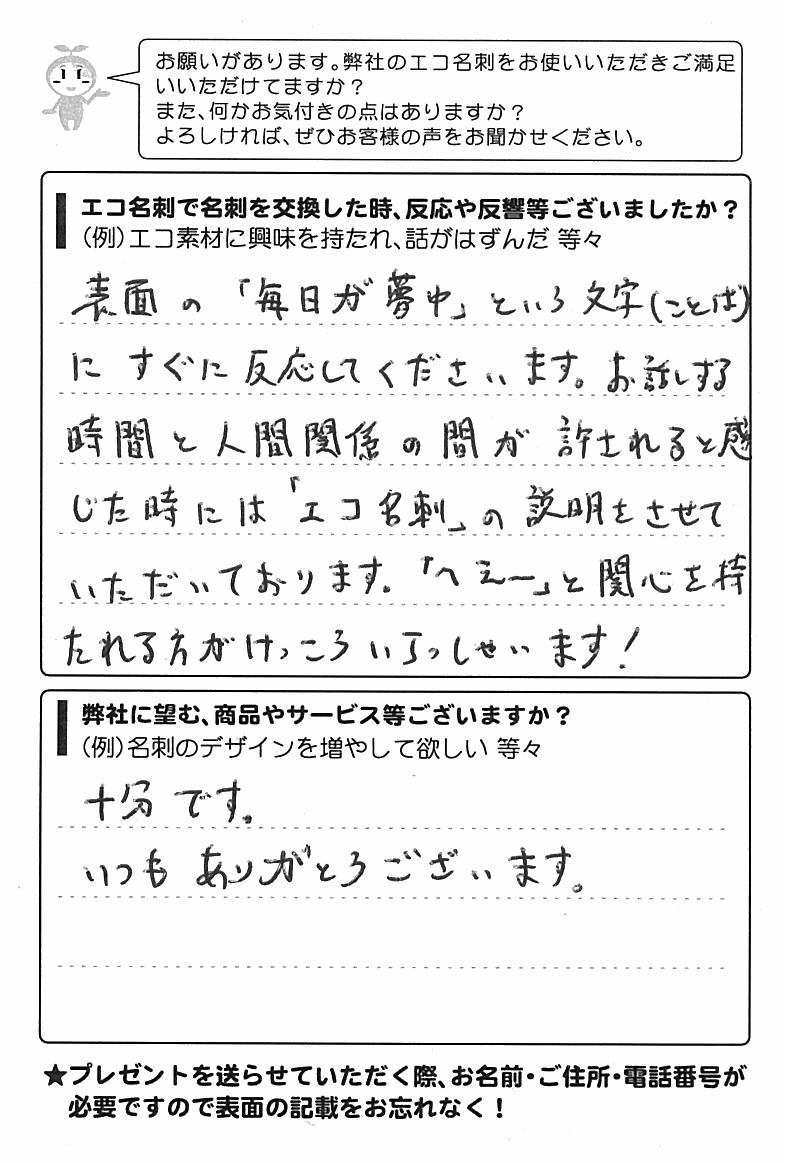 お願いがあります。弊社のエコ名刺をお使いいただきご満足
いいただけてますか？
また、何かお気付きの点はありますか？
よろしければ、ぜひお客様の声をお聞かせください。
エコ名刺で名刺を交換した時、反応や反響等ございましたか？
（例）エコ素材に興味を持たれ、話がはずんだ 等々
表面の「毎日が夢中」という文字(ことば)
にすぐに反応してくださいます。お話しする
時間と人間関係の間が許されると感
じた時には「エコ名刺」の説明をさせて
いただいております。「へえー」と関心を持
たれる方がけっこういらっしゃいます！
弊社に望む、商品やサービス等ございますか？
（例）名刺のデザインを増やして欲しい 等々
十分です。
いつもありがとうございます。
★プレゼントを送らせていただく際、お名前・ご住所・電話番号が
必要ですので表面の記載をお忘れなく！